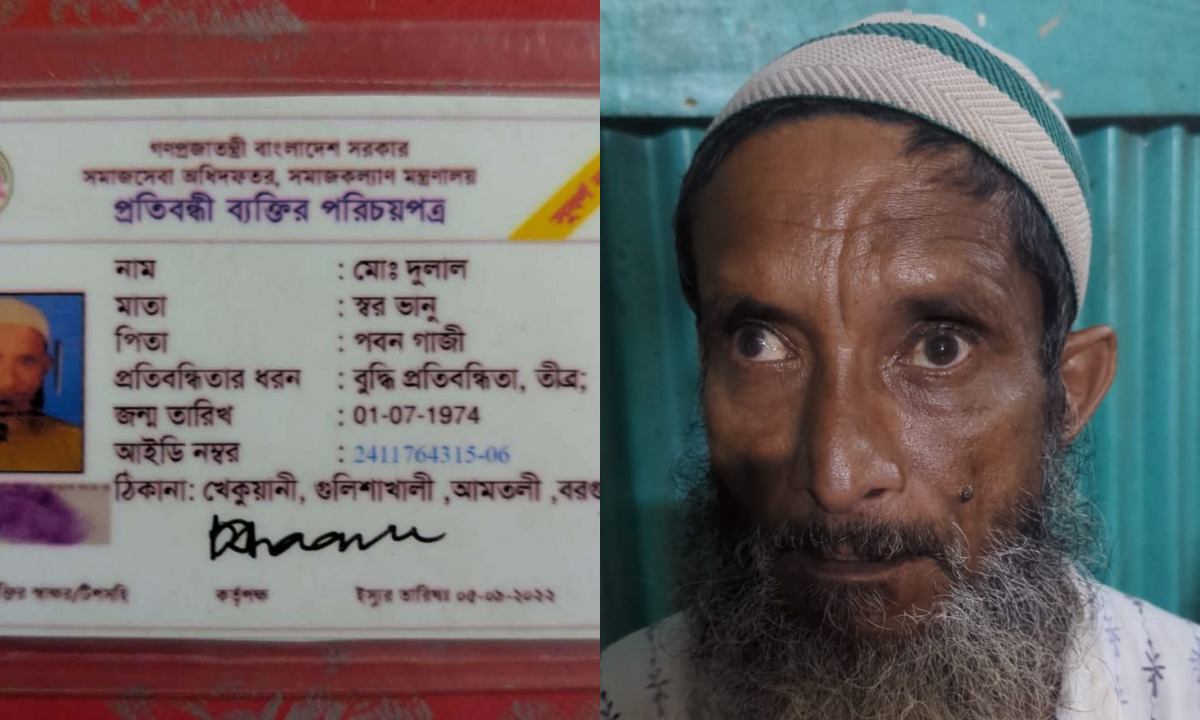 গণপ্রজাতন্ত্রী বাংলাদেশ সরকার
সমাজসেবা অধিদফতর, সমাজকল্যাণ মন্ত্রণালয়
প্রতিবন্ধী ব্যক্তির পরিচয়পত্র
নাম : মোঃ দুলাল
মাতা : স্বর ভানু
পিতা : পবন গাজী
প্রতিবন্ধিতার ধরন : বুদ্ধি প্রতিবন্ধিতা, তীব্র;
জন্ম তারিখ : 01-07-1974
আইডি নম্বর : 2411764315-06
ঠিকানা: খেকুয়ানী, গুলিশাখালী ,আমতলী ,বরগ
স্বাক্ষর/টিপসহি কর্তৃপক্ষ ইস্যুর তারিখঃ ০৫-০৯-২০২২